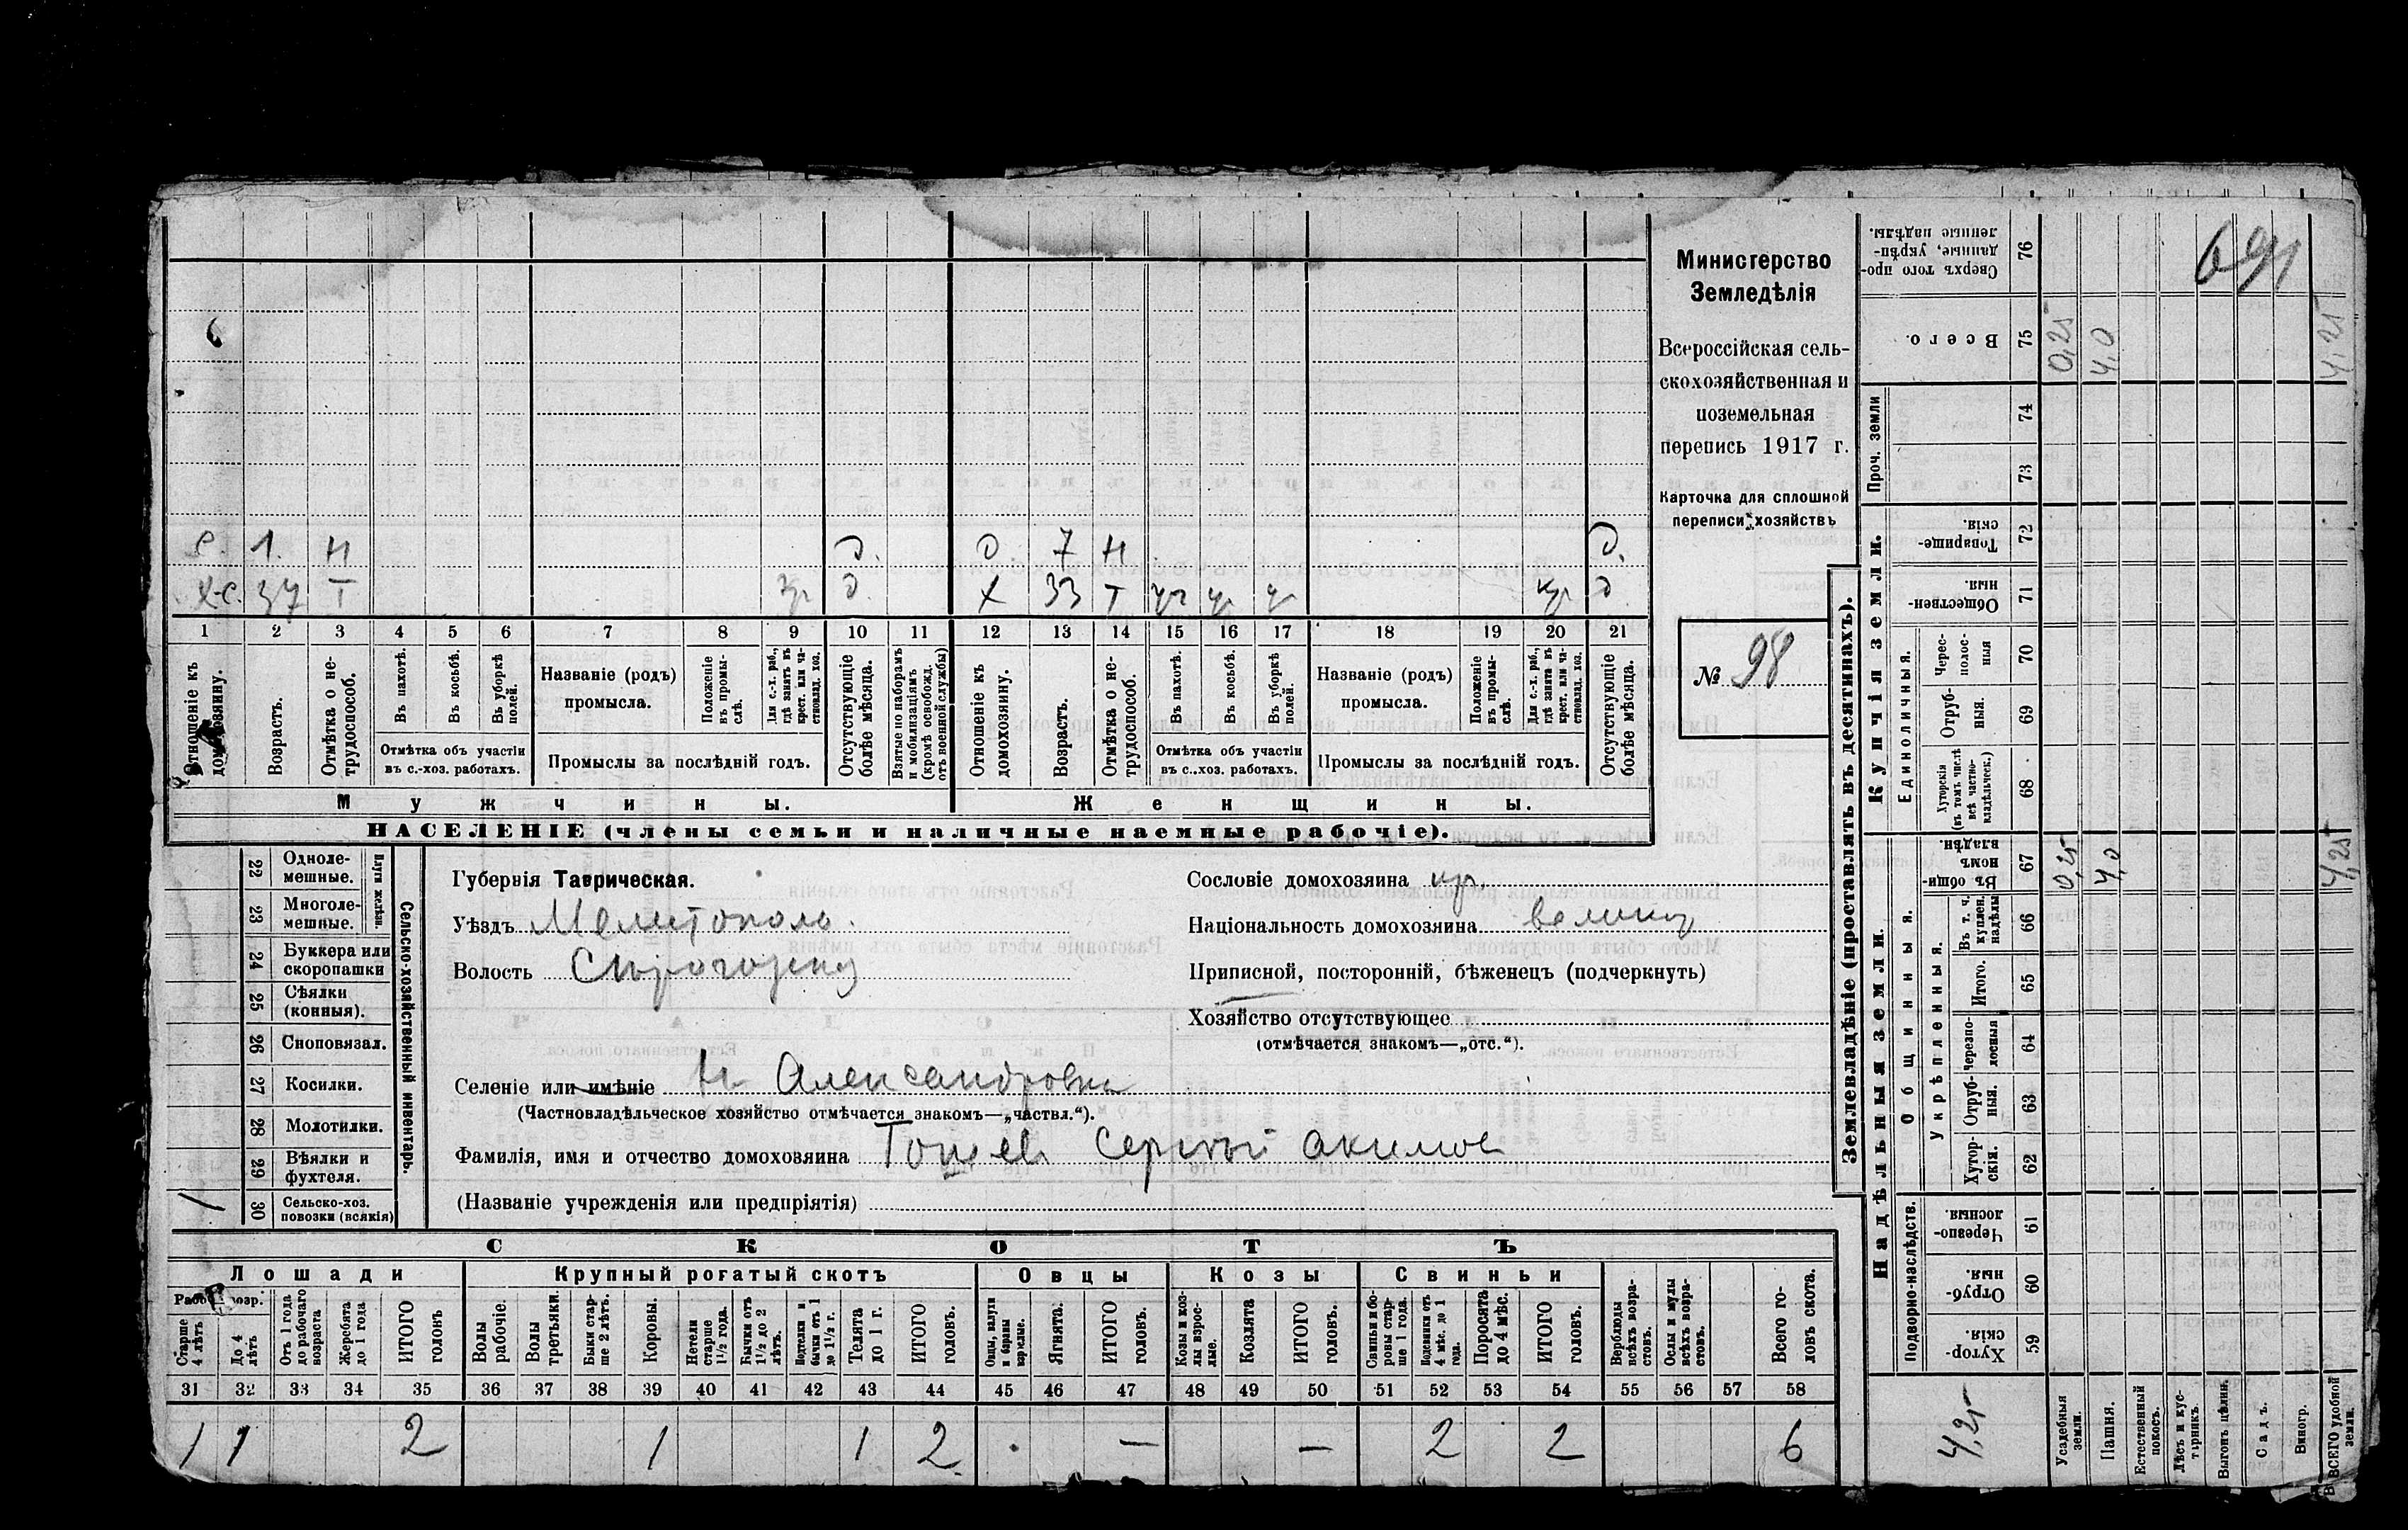 691
Министерство
Земледѣлія
Всероссійская сель-
скохозяйственная и
поземельная
перепись 1917 г.
Карточка для сплошной
переписи хозяйствъ
№ 98
с. 1. Н д. д 7 Н д.
х-с. 37 Т кр д. х 33 Т кр д
1 2 3 4 5 6 7 8 9 10 11 12 13 14 15 16 17 18 19 20 21
Отношеніе къ домохозяину.
Возрастъ.
Отмѣтка о не-трудоспособ.
Въ пахотѣ.
Въ косьбѣ.
Въ уборкѣ полей.
Отмѣтка объ участіи
въ с.-хоз. работахъ.
Названіе (родъ)
промысла.
Положеніе въ промы-слѣ.
Для с.-х. раб., гдѣ занятъ въ крест. или ча-ствовлад. хоз.
Промыслы за послѣдній годъ.
Отсутствующіе болѣе мѣсяца.
Взятые по наборамъ и мобилизаціямъ (кромѣ освобожд. отъ военной службы)
Отношеніе къ домохозяину.
Возрастъ.
Отмѣтка о не-трудоспособ.
Въ пахотѣ.
Въ косьбѣ.
Въ уборкѣ полей.
Отмѣтка объ участіи
въ с.-хоз. работахъ.
Названіе (родъ)
промысла.
Положеніе въ промы-слѣ.
Для с.-х. раб., гдѣ занята въ крест. или ча-ствовлад. хоз.
Промыслы за послѣдній годъ.
Отсутствующіе болѣе мѣсяца.
Мужчины. Женщины.
НАСЕЛЕНІЕ (члены семьи и наличные наемные рабочіе).
Сельско-хозяйственный инвентарь.
22 Однолемешные.
23 Многолемешные.
24 Буккера или скоропашки
25 Сѣялки (конныя).
26 Сноповязал.
27 Косилки.
28 Молотилки.
29 Вѣялки и фухтеля.
1 30 Сельско-хоз. повозки (всякія)
Губернія Таврическая.
Уѣздъ Мелитополь.
Волость
Сословіе домохозяина кр.
Національность домохозяина велико
Приписной, посторонній, бѣженецъ (подчеркнуть)
Хозяйство отсутствующее
(отмѣчается знакомъ—„отс.“).
Селеніе или имѣніе Н Александровка
(Частновладѣльческое хозяйство отмѣчается знакомъ—„частвл.“).
Фамилія, имя и отчество домохозяина Тошев Сергѣй Акимов
(Названіе учрежденія или предпріятія)
СКОТЪ
Лошади Крупный рогатый скотъ Овцы Козы Свиньи
Рабоч. возр.
Старше 4 лѣтъ
До 4 лѣтъ
Отъ 1 года до рабочаго возраста
Жеребята до 1 года
ИТОГО головъ
Волы рабочіе.
Волы третьяки.
Быки стар-ше 2 лѣтъ.
Коровы.
Нетели старше 1½ года.
Бычки отъ 1½ до 2 лѣтъ.
Подтелки и бычки отъ 1 до 1½ г.
Телята до 1 г.
ИТОГО головъ.
Овцы, валухи и бараны взрослые.
Ягнята.
ИТОГО головъ.
Козы и коз-лы взрос-лые.
Козлята
ИТОГО головъ.
Свиньи и бо-ровы стар-ше 1 года.
Подсвинки отъ 4 мѣс. до 1 года.
Поросята до 4 мѣс.
ИТОГО головъ.
Верблюды всѣхъ возра-стовъ.
Ослы и мулы всѣхъ возра-стовъ.
Всего го-ловъ скота.
31 32 33 34 35 36 37 38 39 40 41 42 43 44 45 46 47 48 49 50 51 52 53 54 55 56 57 58
1 1 2 1 1 2 — — 2 2 6
Землевладѣніе (проставлять въ десятинахъ).
Надѣльныя земли.
Подворно-наслѣдств.
59 Хутор-скія.
60 Отруб-ныя.
61 Черезпо-лосныя.
Общинныя.
Укрѣпленныя.
62 Хутор-скія.
63 Отруб-ныя.
64 Черезпо-лосныя
65 Итого.
66 Въ т. ч. куплен. надѣлы
67 Въ общин-номъ владѣн. 0,25 4,0 4,25
Купчія земли.
Единоличныя.
68 Хуторскія (въ томъ числѣ всѣ частно-владѣльческ.)
69 Отруб-ныя.
70 Черес-полос-ныя
71 Обществен-ныя.
72 Товарище-скія.
Проч. земли
73
74
75 Всего. 0,25 4,0 4,25
76 Сверхъ того про-данные, укрѣп-ленные надѣлы.
4,25
Усадебныя земли.
Пашня.
Естественный покосъ.
Лѣсъ и кус-тарникъ.
Выгонъ цѣлин.
Садъ.
Виногр.
ВСЕГО удобной земли.